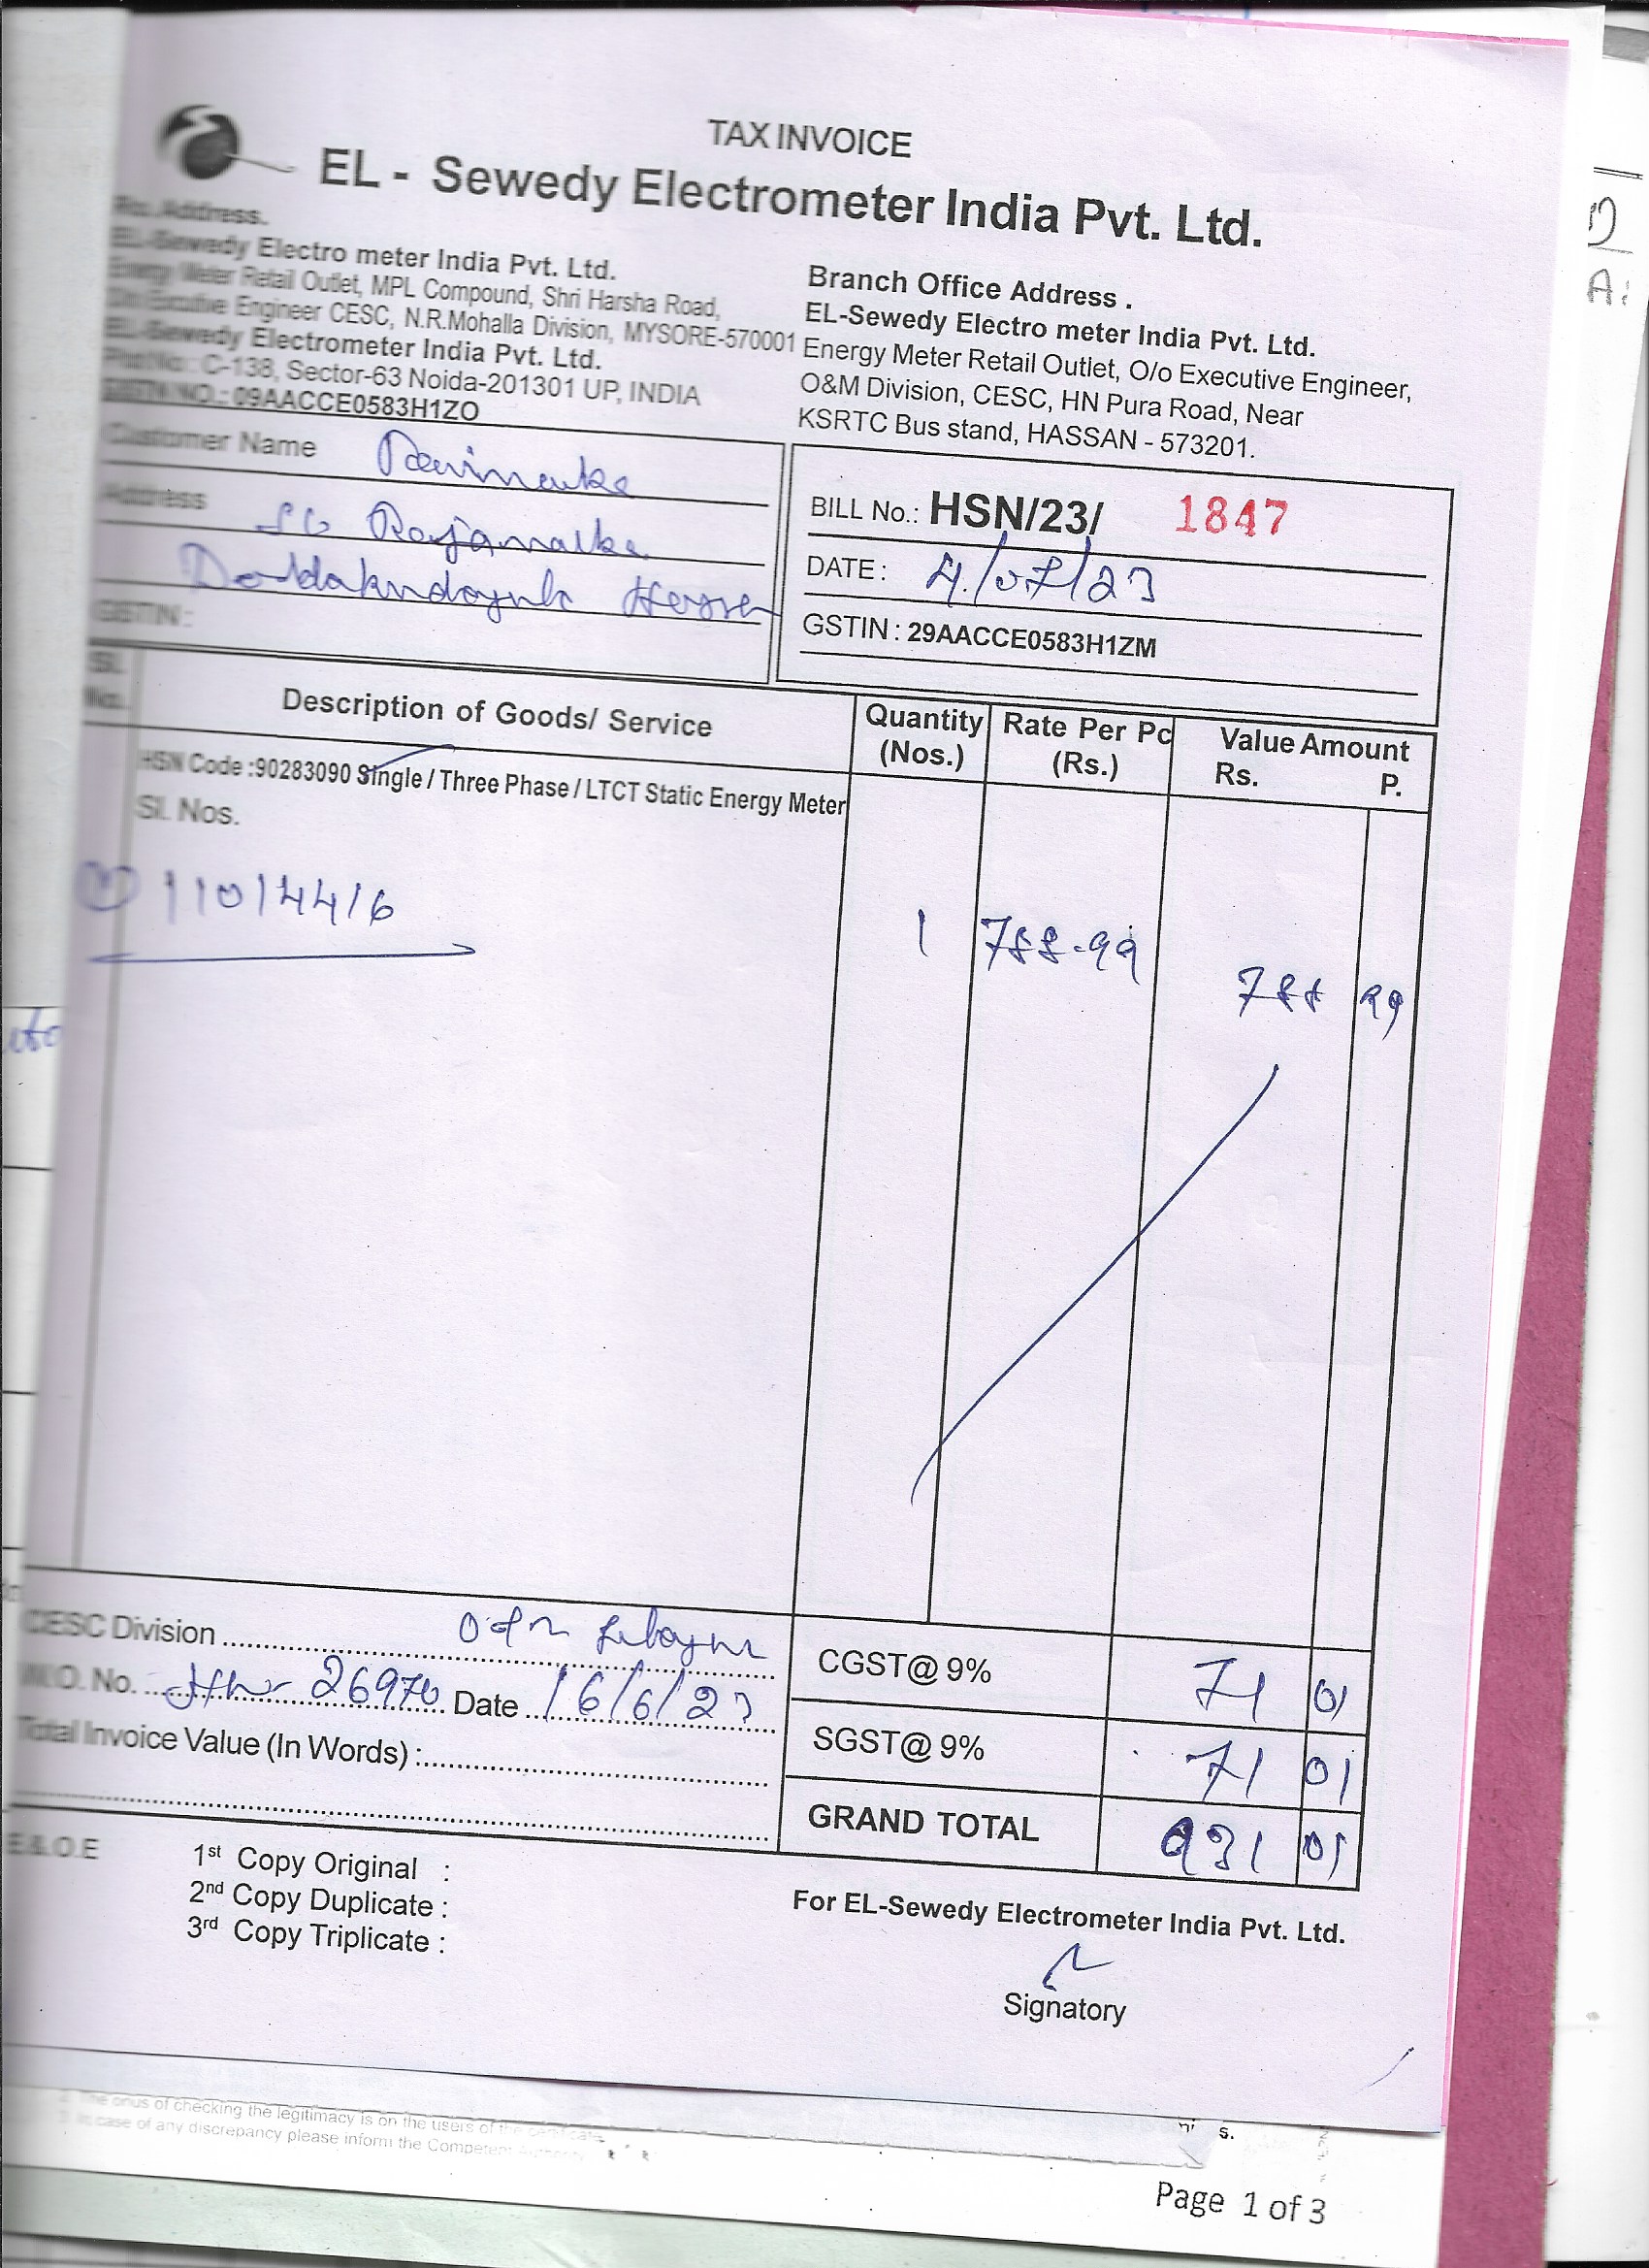 TAX INVOICE
EL - Sewedy Electrometer India Pvt. Ltd.
Address.
EL-Sewedy Electro meter India Pvt. Ltd.
Energy Meter Retail Outlet, MPL Compound, Shri Harsha Road,
Engineer CESC, N.R.Mohalla Division, MYSORE-570001
EL-Sewedy Electrometer India Pvt. Ltd.
C-138, Sector-63 Noida-201301 UP, INDIA
GSTIN NO.: 09AACCE0583H1ZO
Branch Office Address .
EL-Sewedy Electro meter India Pvt. Ltd.
Energy Meter Retail Outlet, O/o Executive Engineer,
O&M Division, CESC, HN Pura Road, Near
KSRTC Bus stand, HASSAN - 573201.
Customer Name
Address
GSTIN :
BILL No.: HSN/23/ 1847
DATE : 4/07/23
GSTIN : 29AACCE0583H1ZM
Sl. No.
Description of Goods/ Service
Quantity (Nos.)
Rate Per Pc (Rs.)
Value Amount
Rs. P.
HSN Code :90283090 Single / Three Phase / LTCT Static Energy Meter
Sl. Nos.
11014416
1 788-99 788 99
CESC Division
W.O. No. 26970 Date 16/6/23
Total Invoice Value (In Words) :
CGST@ 9% 71 01
SGST@ 9% 71 01
GRAND TOTAL 931 01
E.&.O.E
1st Copy Original :
2nd Copy Duplicate :
3rd Copy Triplicate :
For EL-Sewedy Electrometer India Pvt. Ltd.
Signatory
The onus of checking the legitimacy is on the users of the certificate.
In case of any discrepancy please inform the Competent Authority
Page 1 of 3